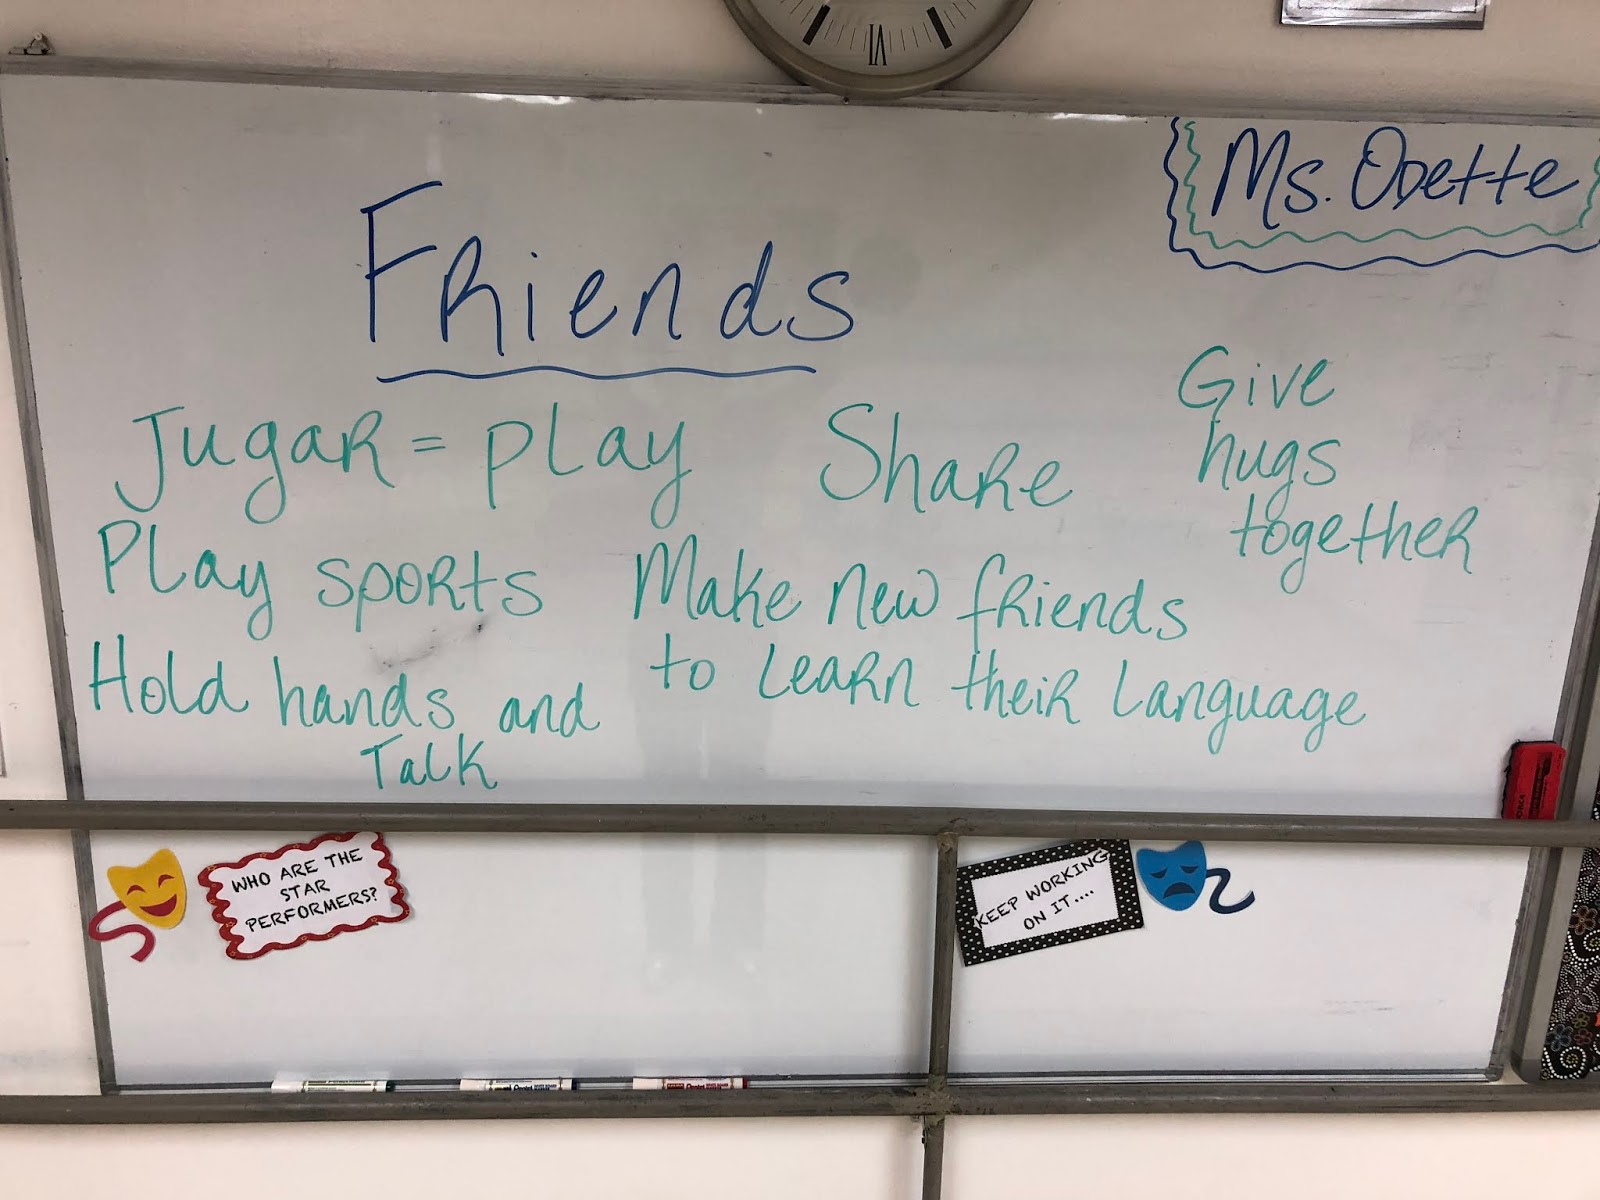 VI
Ms. Odette
Friends
Jugar = play
Share
Give
hugs
together
Play sports
Make new friends
to learn their language
Hold hands and
Talk
WHO ARE THE
STAR
PERFORMERS?
KEEP WORKING
ON IT....
Pentel
Pentel